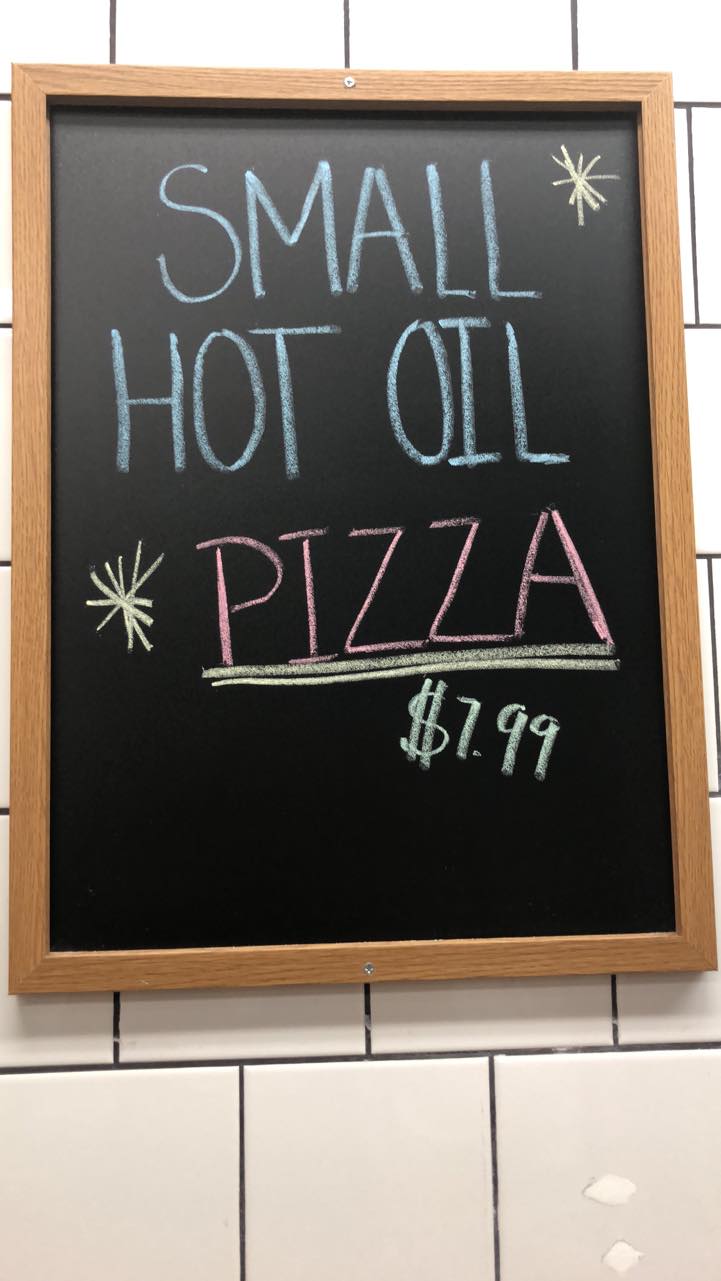 SMALL
HOT OIL
PIZZA
$7.99